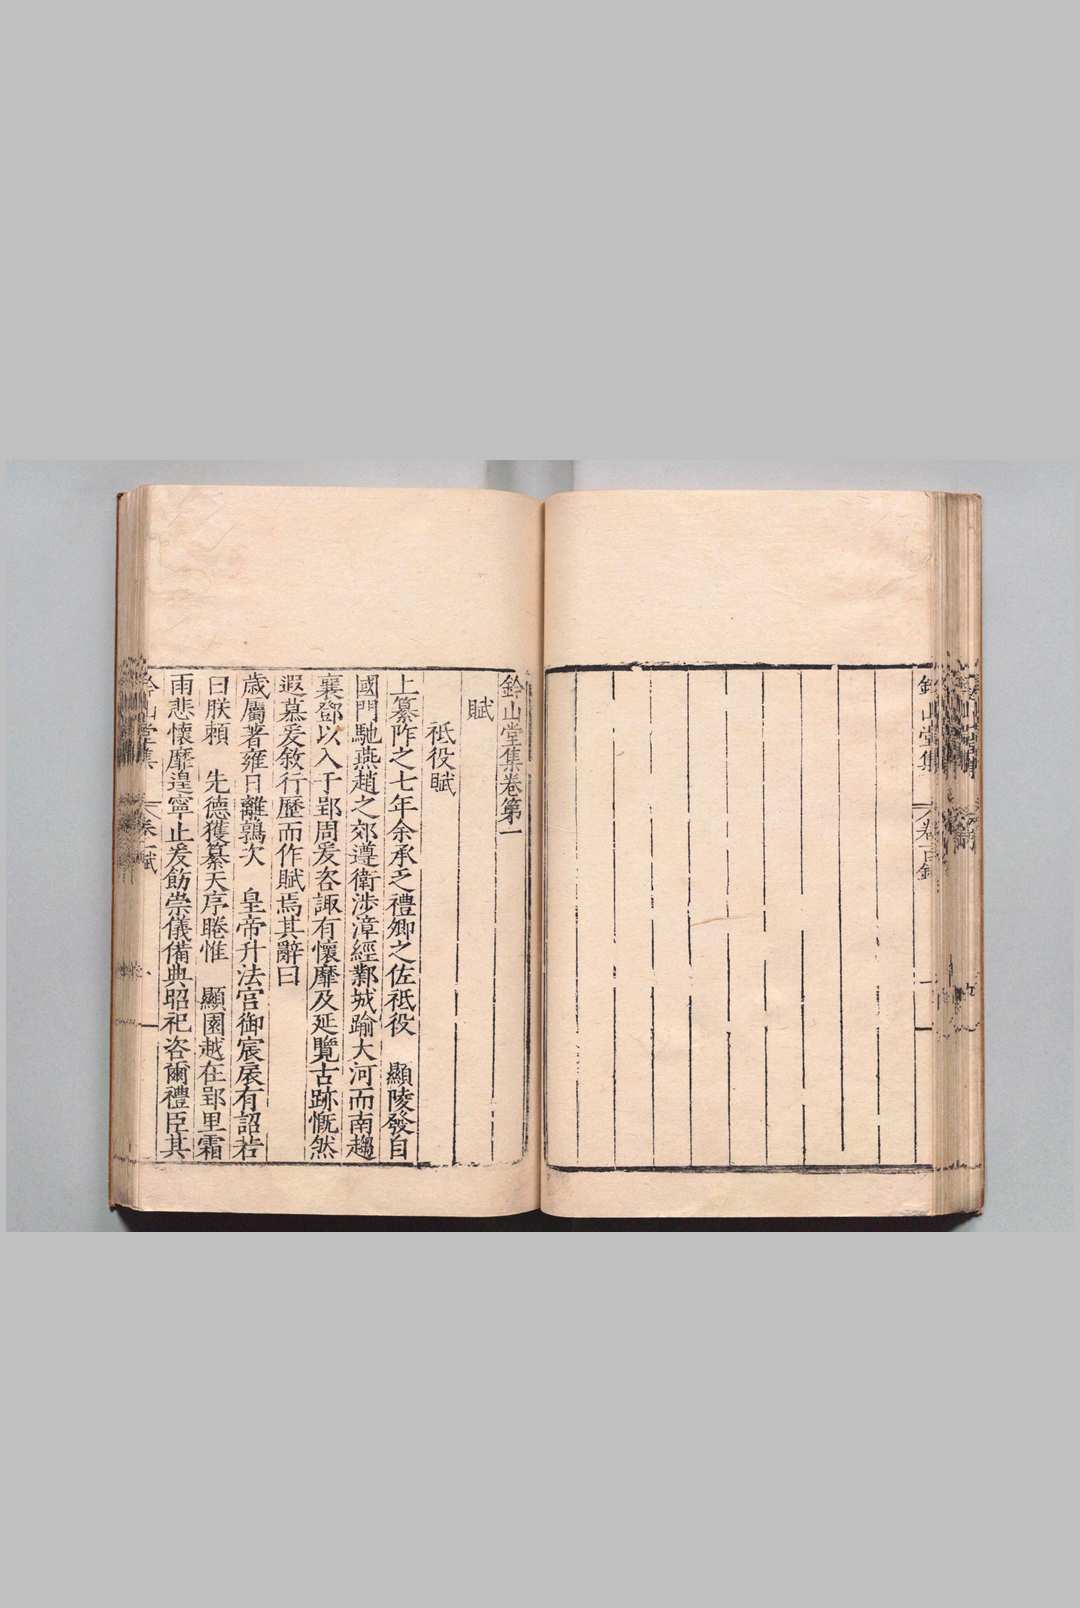 鈐山堂集
卷一目錄
鈐山堂集卷第一
賦
祗役賦
上纂阼之七年余承乏禮卿之佐祗役　顯陵發自
國門馳燕趙之郊遵衛涉漳經鄴城踰大河而南趨
襄鄧以入于郢周爰咨諏有懷靡及延覽古跡慨然
遐慕爰敘行歷而作賦焉其辭曰
歲屬著雍日離鶉次　皇帝升法宮御宸扆有詔若
曰朕賴　先德獲纂天序睠惟　顯園越在郢里霜
雨悲懷靡遑寧止爰飭崇儀備典昭祀咨爾禮臣其
鈐山堂集
卷一賦
一